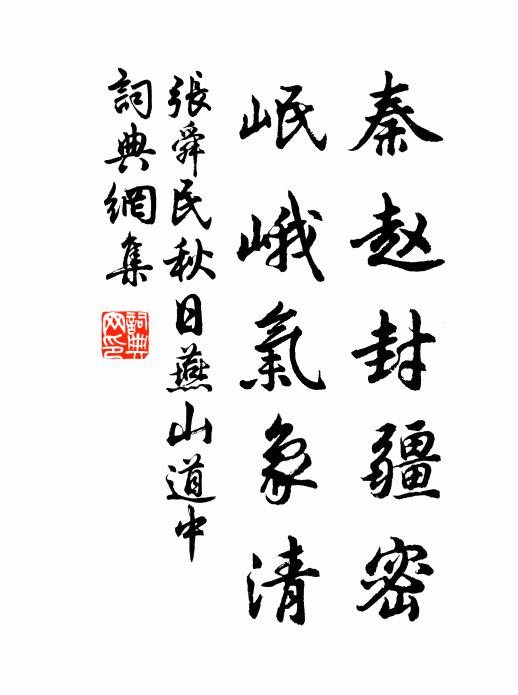 秦赵封疆密
岷峨氣象清
張舜民秋日燕山道中
詞典網集
詞典網印